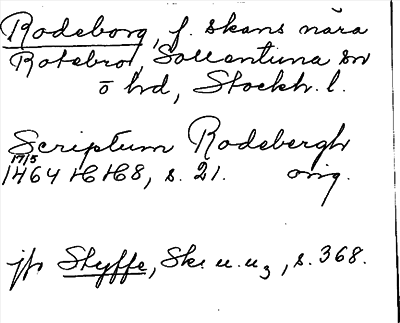 Rodeborg, f. skans nära
Rotebro, Sollentuna sn
o hd, Stockh. l.
Scriptum Rodebergh
17/5
1464 HH8, s. 21. orig.
jfr Styffe, Sk. u. u3, s. 368.